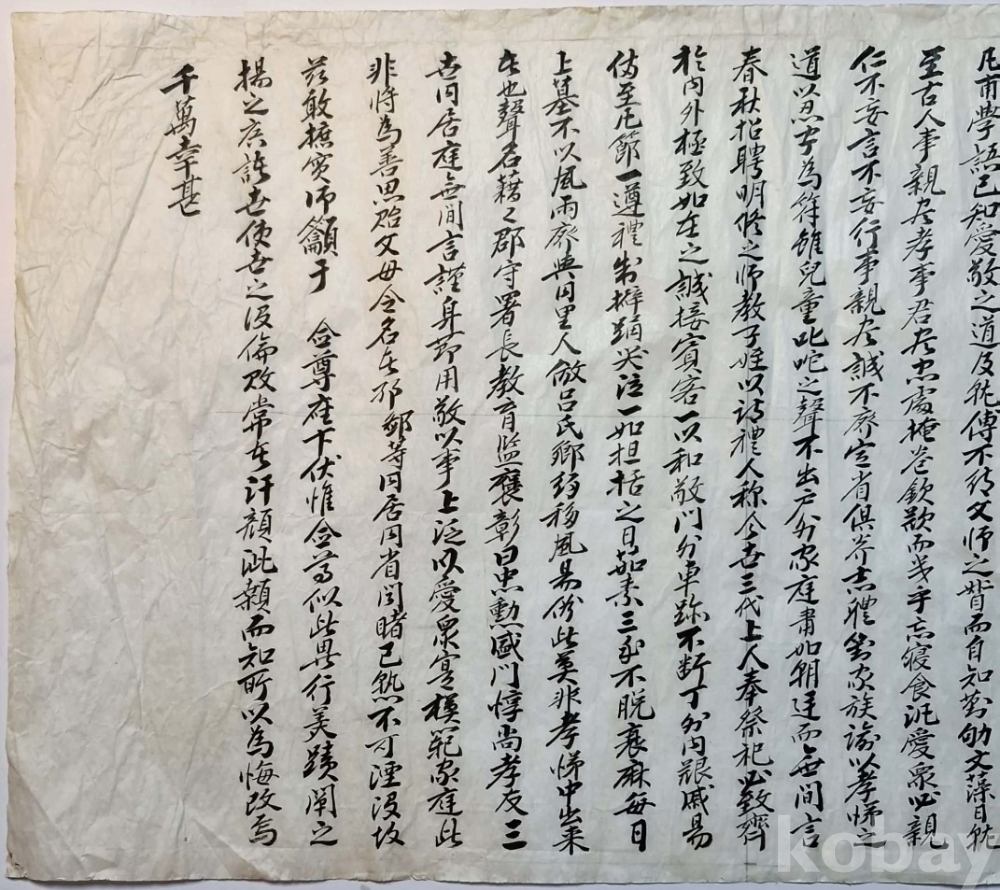 凡甫學語已知愛敬之道及就傅不待父師之督而自知勤劬文藻日就
至古人事親盡孝事君盡忠處掩卷欽歎而幾乎忘寢食汎愛衆必親
仁不妄言不妄行事親盡誠不廢定省俱养志體對家族諭以孝悌之
道以忍字為符雖兒童叱咤之聲不出戶外家庭肅如朝廷而無間言
春秋指聘明修之師教子姪以詩禮人称今世三代上人奉祭祀必致齊
於內外極致如在之誠接賓客一以和敬門外車跡不断丁外內艱戚易
俻至凡節一遵禮制擗踊哭泣一如担括之日茹素三年不脫衰麻每日
上墓不以風雨廢與同里人倣呂氏鄉約移風易俗此莫非孝悌中出来
者也聲名藉々郡守署長教育監褒彰曰忠勳盛門惇尚孝友三
世同居庭無間言謹身節用敬以事上泛以愛衆寔模範家庭此
非將為善思貽父母令名者邪鄙等同居同省問睹已熟不可湮沒故
茲敢摭實仰籲于 僉尊座下伏惟僉尊似此異行美蹟闡之
揚之廣誇世使世之没倫敗常者汗顔泚顙而知所以為悔改焉
千萬幸甚
kobay